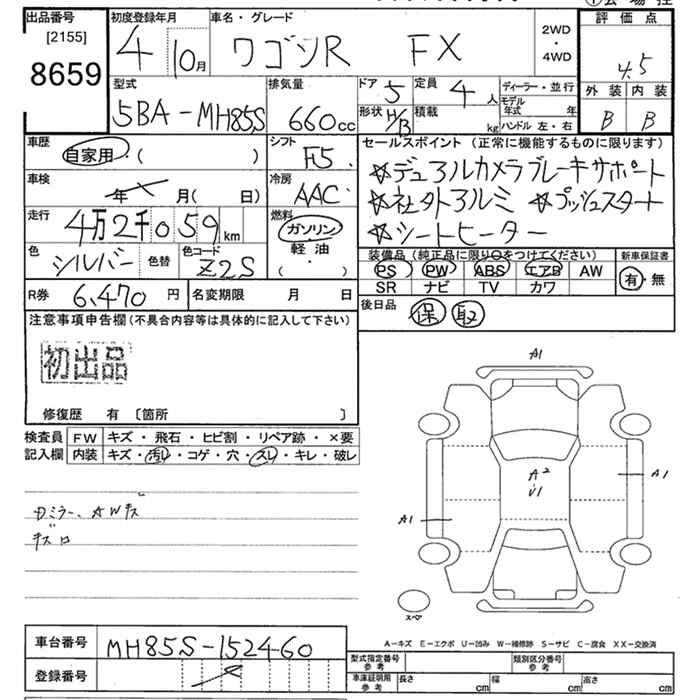 出品番号 [2155] 8659
初度登録年月 4 10月
車名・グレード ワゴンR FX
2WD・4WD
評価点 4.5
外装 B 内装 B
型式 5BA-MH85S
排気量 660cc
ドア 5 形状 H/B
定員 4人 積載 kg
ディーラー・並行
モデル年式 年
ハンドル 左・右
車歴 自家用 ( )
シフト F5
セールスポイント (正常に機能するものに限ります)
☆デュアルカメラブレーキサポート
☆社外アルミ ☆プッシュスタート
☆シートヒーター
車検 年 月( 日)
冷房 AAC
走行 4万2千059km
燃料 ガソリン 軽油 ( )
色 シルバー 色替 色コード Z2S
装備品 (純正品に限り○をつけてください) 新車保証書
PS PW ABS エアB AW 有・無
SR ナビ TV カワ
R券 6,470円 名変期限 月 日
後日品 保 取
注意事項申告欄 (不具合内容等は具体的に記入して下さい)
初出品
修復歴 有 〔箇所 〕
検査員記入欄 FW キズ・飛石・ヒビ割・リペア跡・×要
内装 キズ・汚れ・コゲ・穴・スレ・キレ・破レ
ミラー、AWキズ
A1
A2
U1
A1
A1
スペア
車台番号 MH85S-152460
登録番号
A-キズ E-エクボ U-凹み W-補修跡 S-サビ C-腐食 XX-交換済
型式指定番号 参考 類別区分番号 参考
車庫証明用 参考 長さ cm 幅 cm 高さ cm